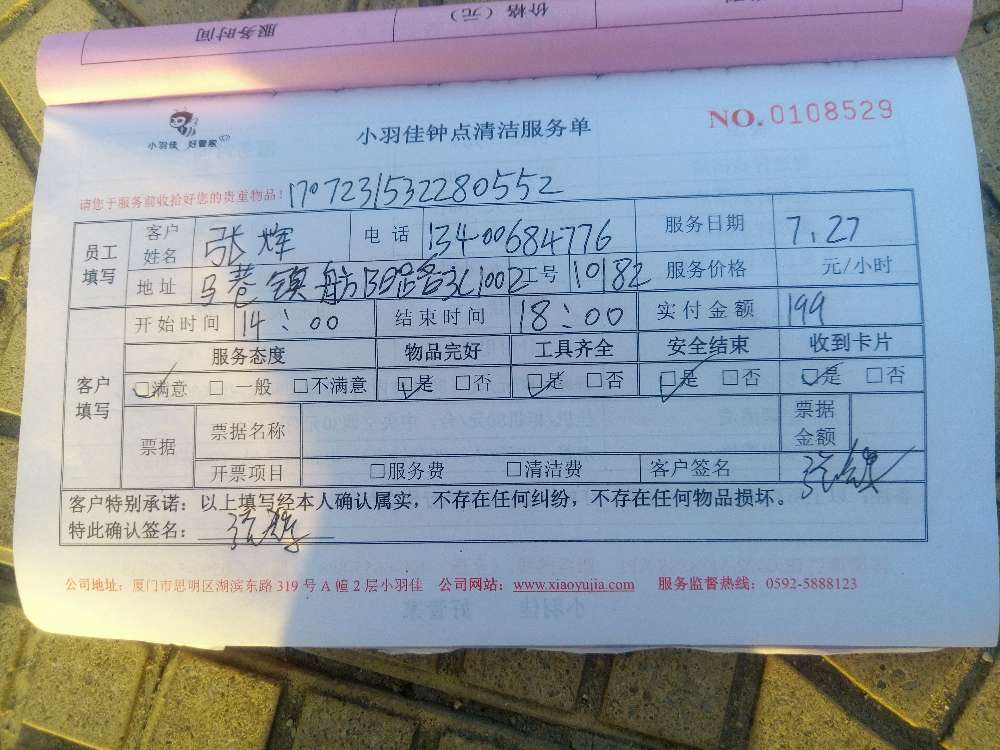 服务时间
价格（元）
小羽佳 好管家
小羽佳钟点清洁服务单
NO.0108529
请您于服务前收拾好您的贵重物品！170723153228055​2
员工填写 客户姓名 张辉 电话 13400684776 服务日期 7.27
地址 马巷镇舫阳 号1002 工号 10182 服务价格 元/小时
开始时间 14:00 结束时间 18:00 实付金额 199
客户填写 服务态度 物品完好 工具齐全 安全结束 收到卡片
☑满意 □一般 □不满意 ☑是 □否 ☑是 □否 ☑是 □否 ☑是 □否
票据 票据名称 票据金额
开票项目 □服务费 □清洁费 客户签名 张辉
客户特别承诺：以上填写经本人确认属实，不存在任何纠纷，不存在任何物品损坏。
特此确认签名：张辉
公司地址：厦门市思明区湖滨东路 319 号 A 幢 2 层小羽佳 公司网站：www.xiaoyujia.com 服务监督热线：0592-5888123